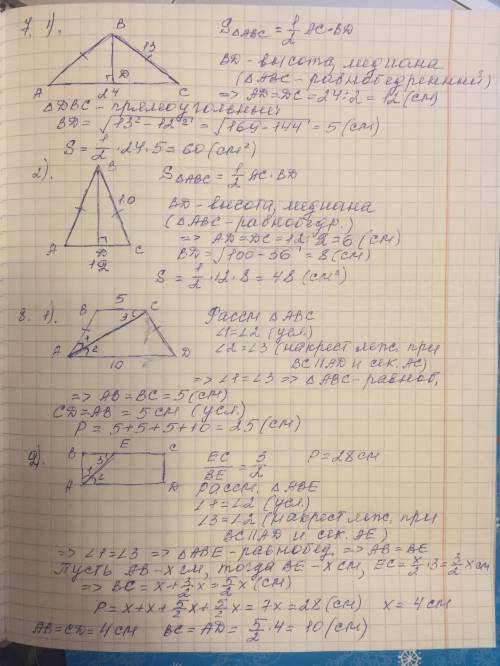 7. 1).
B
13
D
A 24 C
S△ABC = 1/2 AC·BD
BD - высота, медиана
(△ABC - равнобедренной)
=> AD=DC=24:2=12 (см)
△DBC - прямоугольный
BD = √13²-12² = √169-144 = 5 (см)
S = 1/2 · 24 · 5 = 60 (см²)
2).
B
10
A D C
12
S△ABC = 1/2 AC·BD
BD - высота, медиана
(△ABC - равнобедр.)
=> AD=DC=12:2=6 (см)
BD=√100-36 = 8 (см)
S = 1/2 · 12 · 8 = 48 (см²)
8. 1).
5
B C
3
1
2
A 10 D
Рассм △ABC
∠1=∠2 (усл.)
∠2=∠3 (накрест леж. при
BC||AD и сек. AC)
=> ∠1=∠3 => △ABC - равноб,
=> AB=BC=5(см)
CD=AB = 5см (усл.)
P = 5+5+5+10=25 (см)
2).
B E C
3
1
2
A D
EC/BE = 3/2 P=28см
Рассм. △ABE
∠1=∠2 (усл.)
∠3=∠2 (накрест леж. при
BC||AD и сек. AE)
=> ∠1=∠3 => △ABE - равнобед. => AB=BE
Пусть AB - x см, тогда BE - x см, EC = x/2 · 3 = 3/2 x см
=> BC = x + 3/2 x = 5/2 x (см)
P = x+x+ 5/2 x + 5/2 x = 7x = 28 (см) x = 4 см
AB=CD=4см BC=AD= 5/2 · 4 = 10 (см)